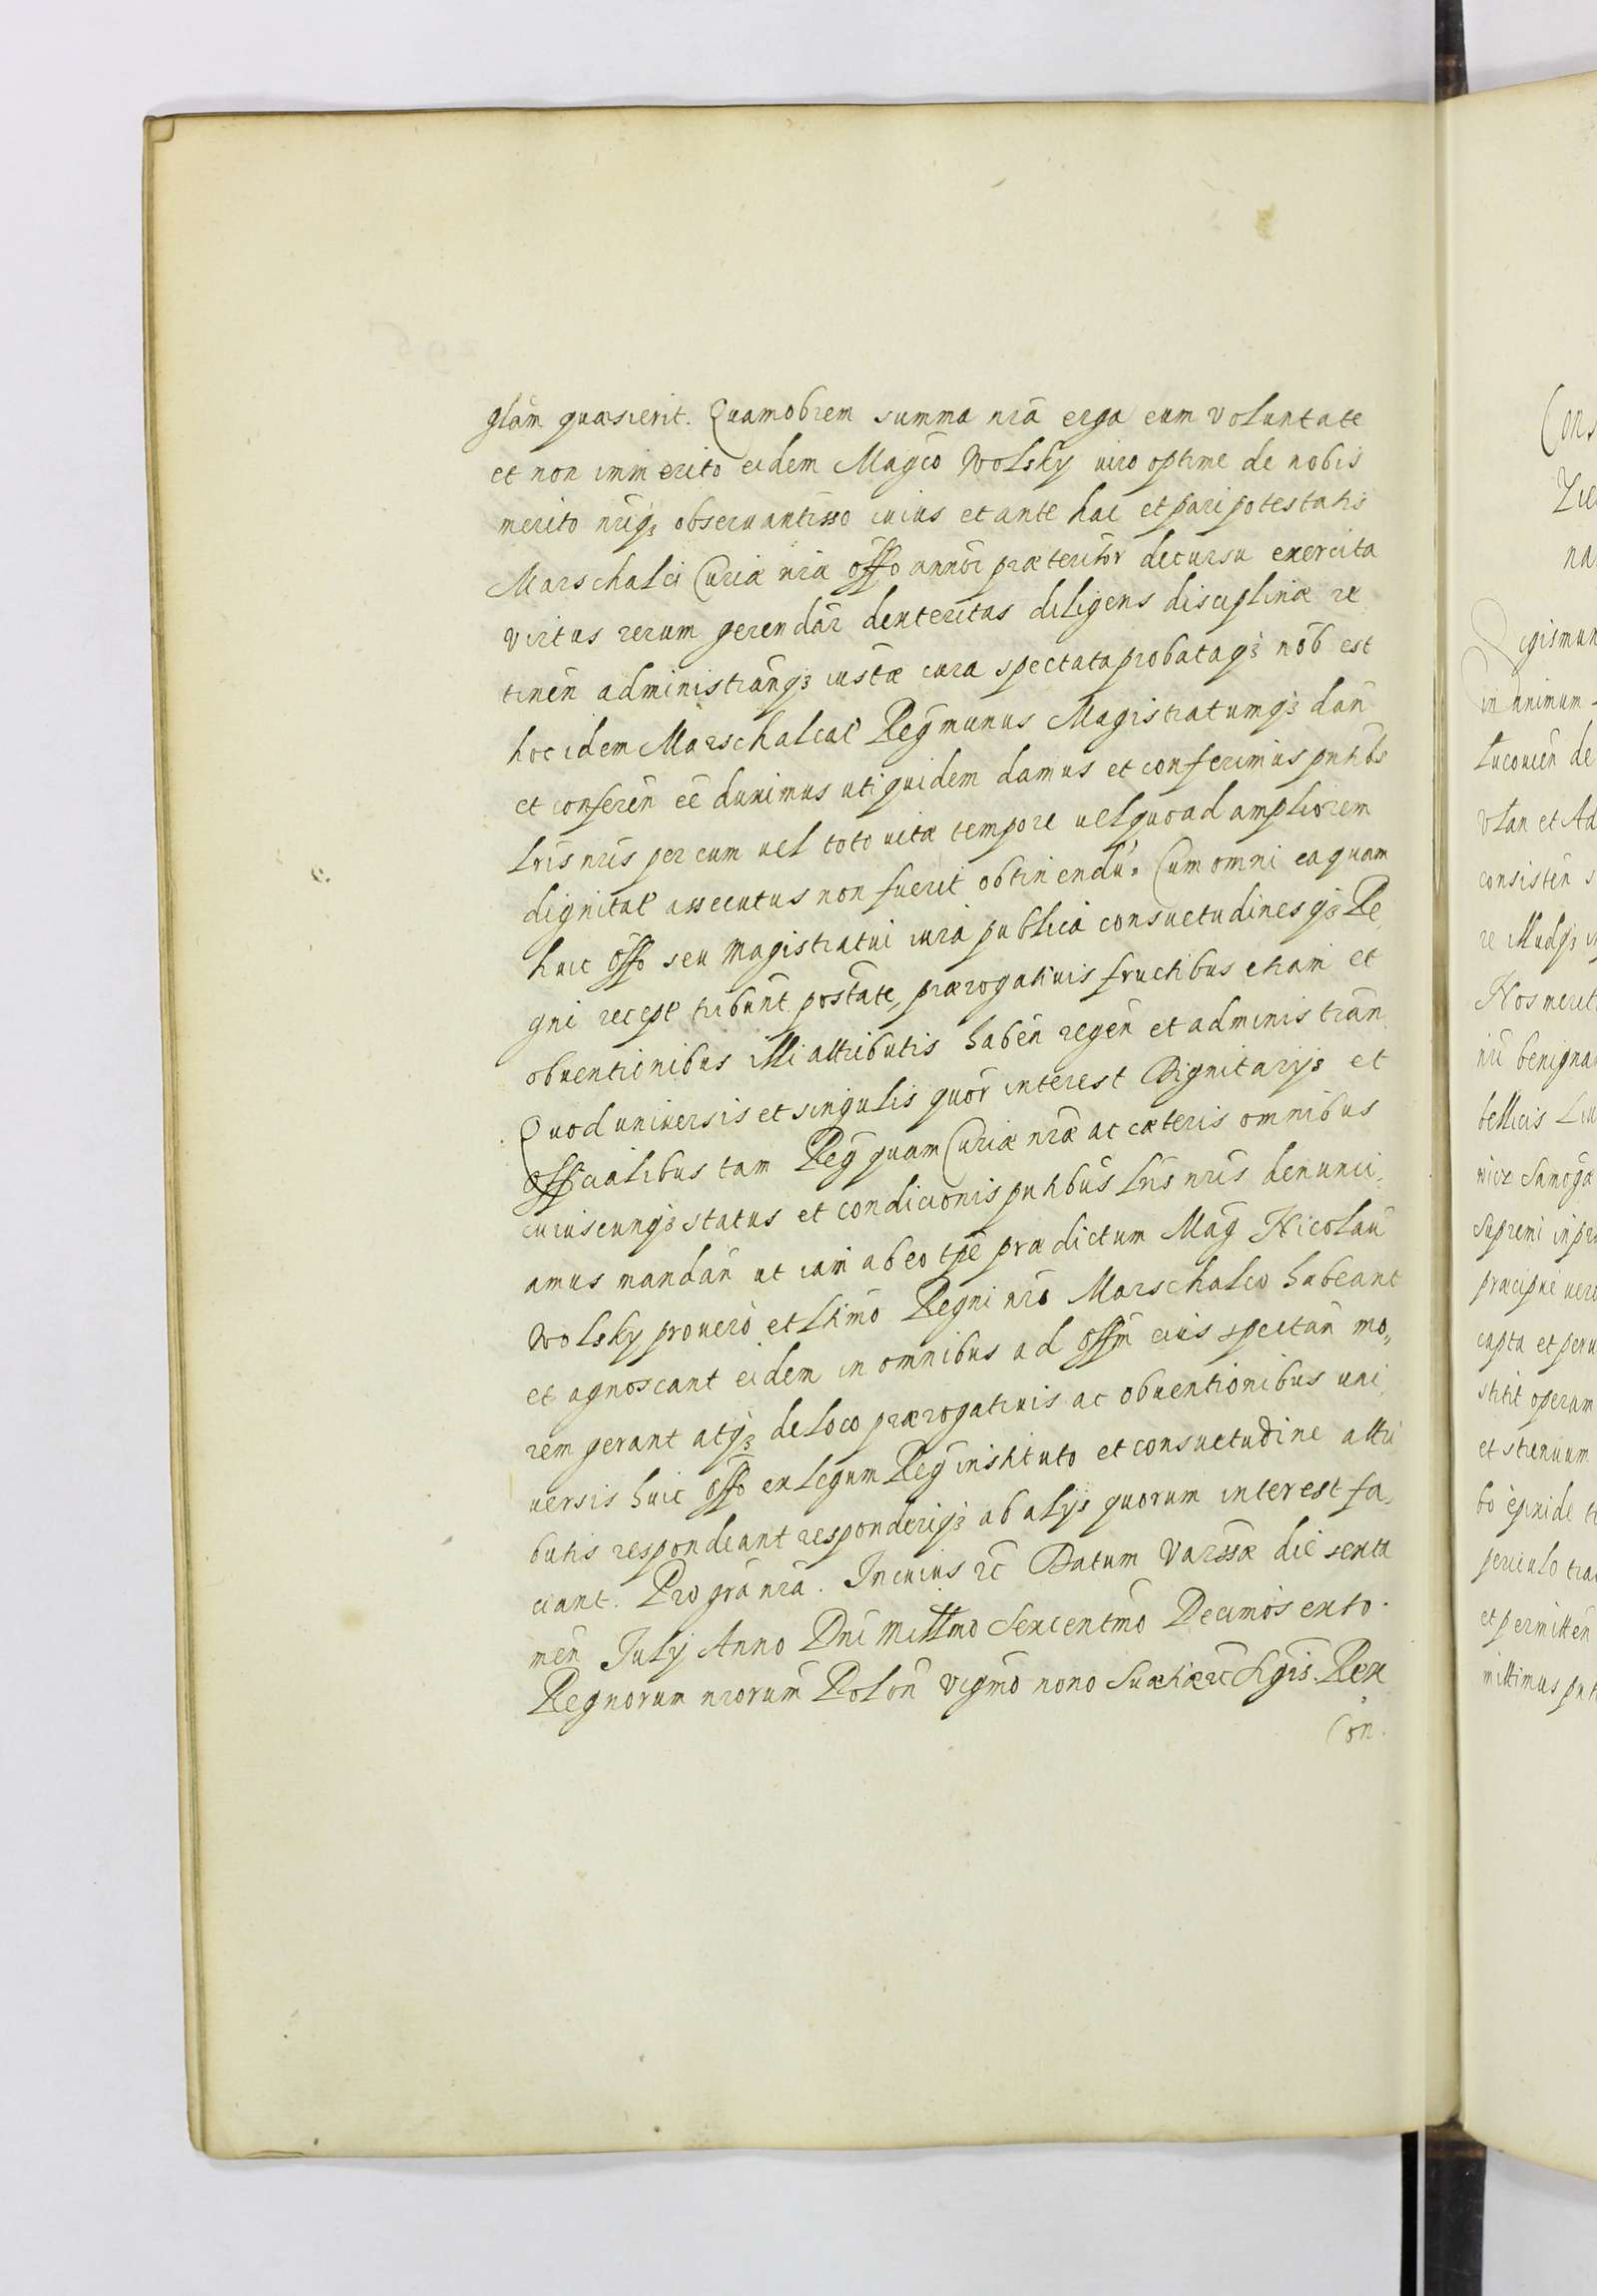 glam quæsierit. Quamobrem summa nrã erga eum voluntate
et non immerito eidem Magco Wolsky viro optime de nobis
merito nriq3 observantisso cuius et ante hac et pari potestatis
Marschalci Curiæ nræ offo annor præteritor decursu exercita
virtus rerum gerendar dexteritas diligens disciplinæ re
tinen administranq3 iustæ cura spectata probataq3 nob est
hoc idem Marschalcat Reg munus Magistratumq3 dan
et conferen ee duximus uti quidem damus et conferimus pntibs
Lris nris per eum vel toto vitæ tempore vel quoad ampliorem
dignitat assecutus non fuerit obtinendu. Cum omni ea quam
huic offo seu Magistratui iura publica consuetudinesq3 Re
gni recept tribunt postate, prærogativis fructibus etiam et
obventionibus illi attributis haben regen et administran
Quod universis et singulis quor interest Dignitarijs et
Officialibus tam Reg quam Curiæ nræ ac cæteris omnibus
cuiuscunq3 status et condicionis pntibus Lris nris denunci,
amus mandan ut iam ab eo tpe prædictum Mag Nicolau
Wolsky pro vero et Ltimo Regni nro Marschalco habeant
et agnoscant eidem in omnibus ad offm eius spectan mo,,
rem gerant atq3 de loco prærogativis ac obventionibus uni,
versis huic offo ex legum Reg instituto et consuetudine attri
butis respondeant responderiq3 ab alijs quorum interest fa,
ciant. Pro gra nra. In cuius rc Datum Varssæ die sexta
men July Anno Dni Millmo Sexcentmo Decimosexto.
Regnorum nrorum Polon Vigmo nono Suætiæ rc Sigis. Rex
Con.
Cons
Zie
na
Sigismun
in animum
Lucovien de
Vlan et Ad
consisten s
re illudq3
Nos merit
nri benigna
bellicis
wicz Samoga
Supremi in
præcipue vero
capta et peru
stitit operam
et strenuum
bo
periculo tra
et permitten
mittimus pnt